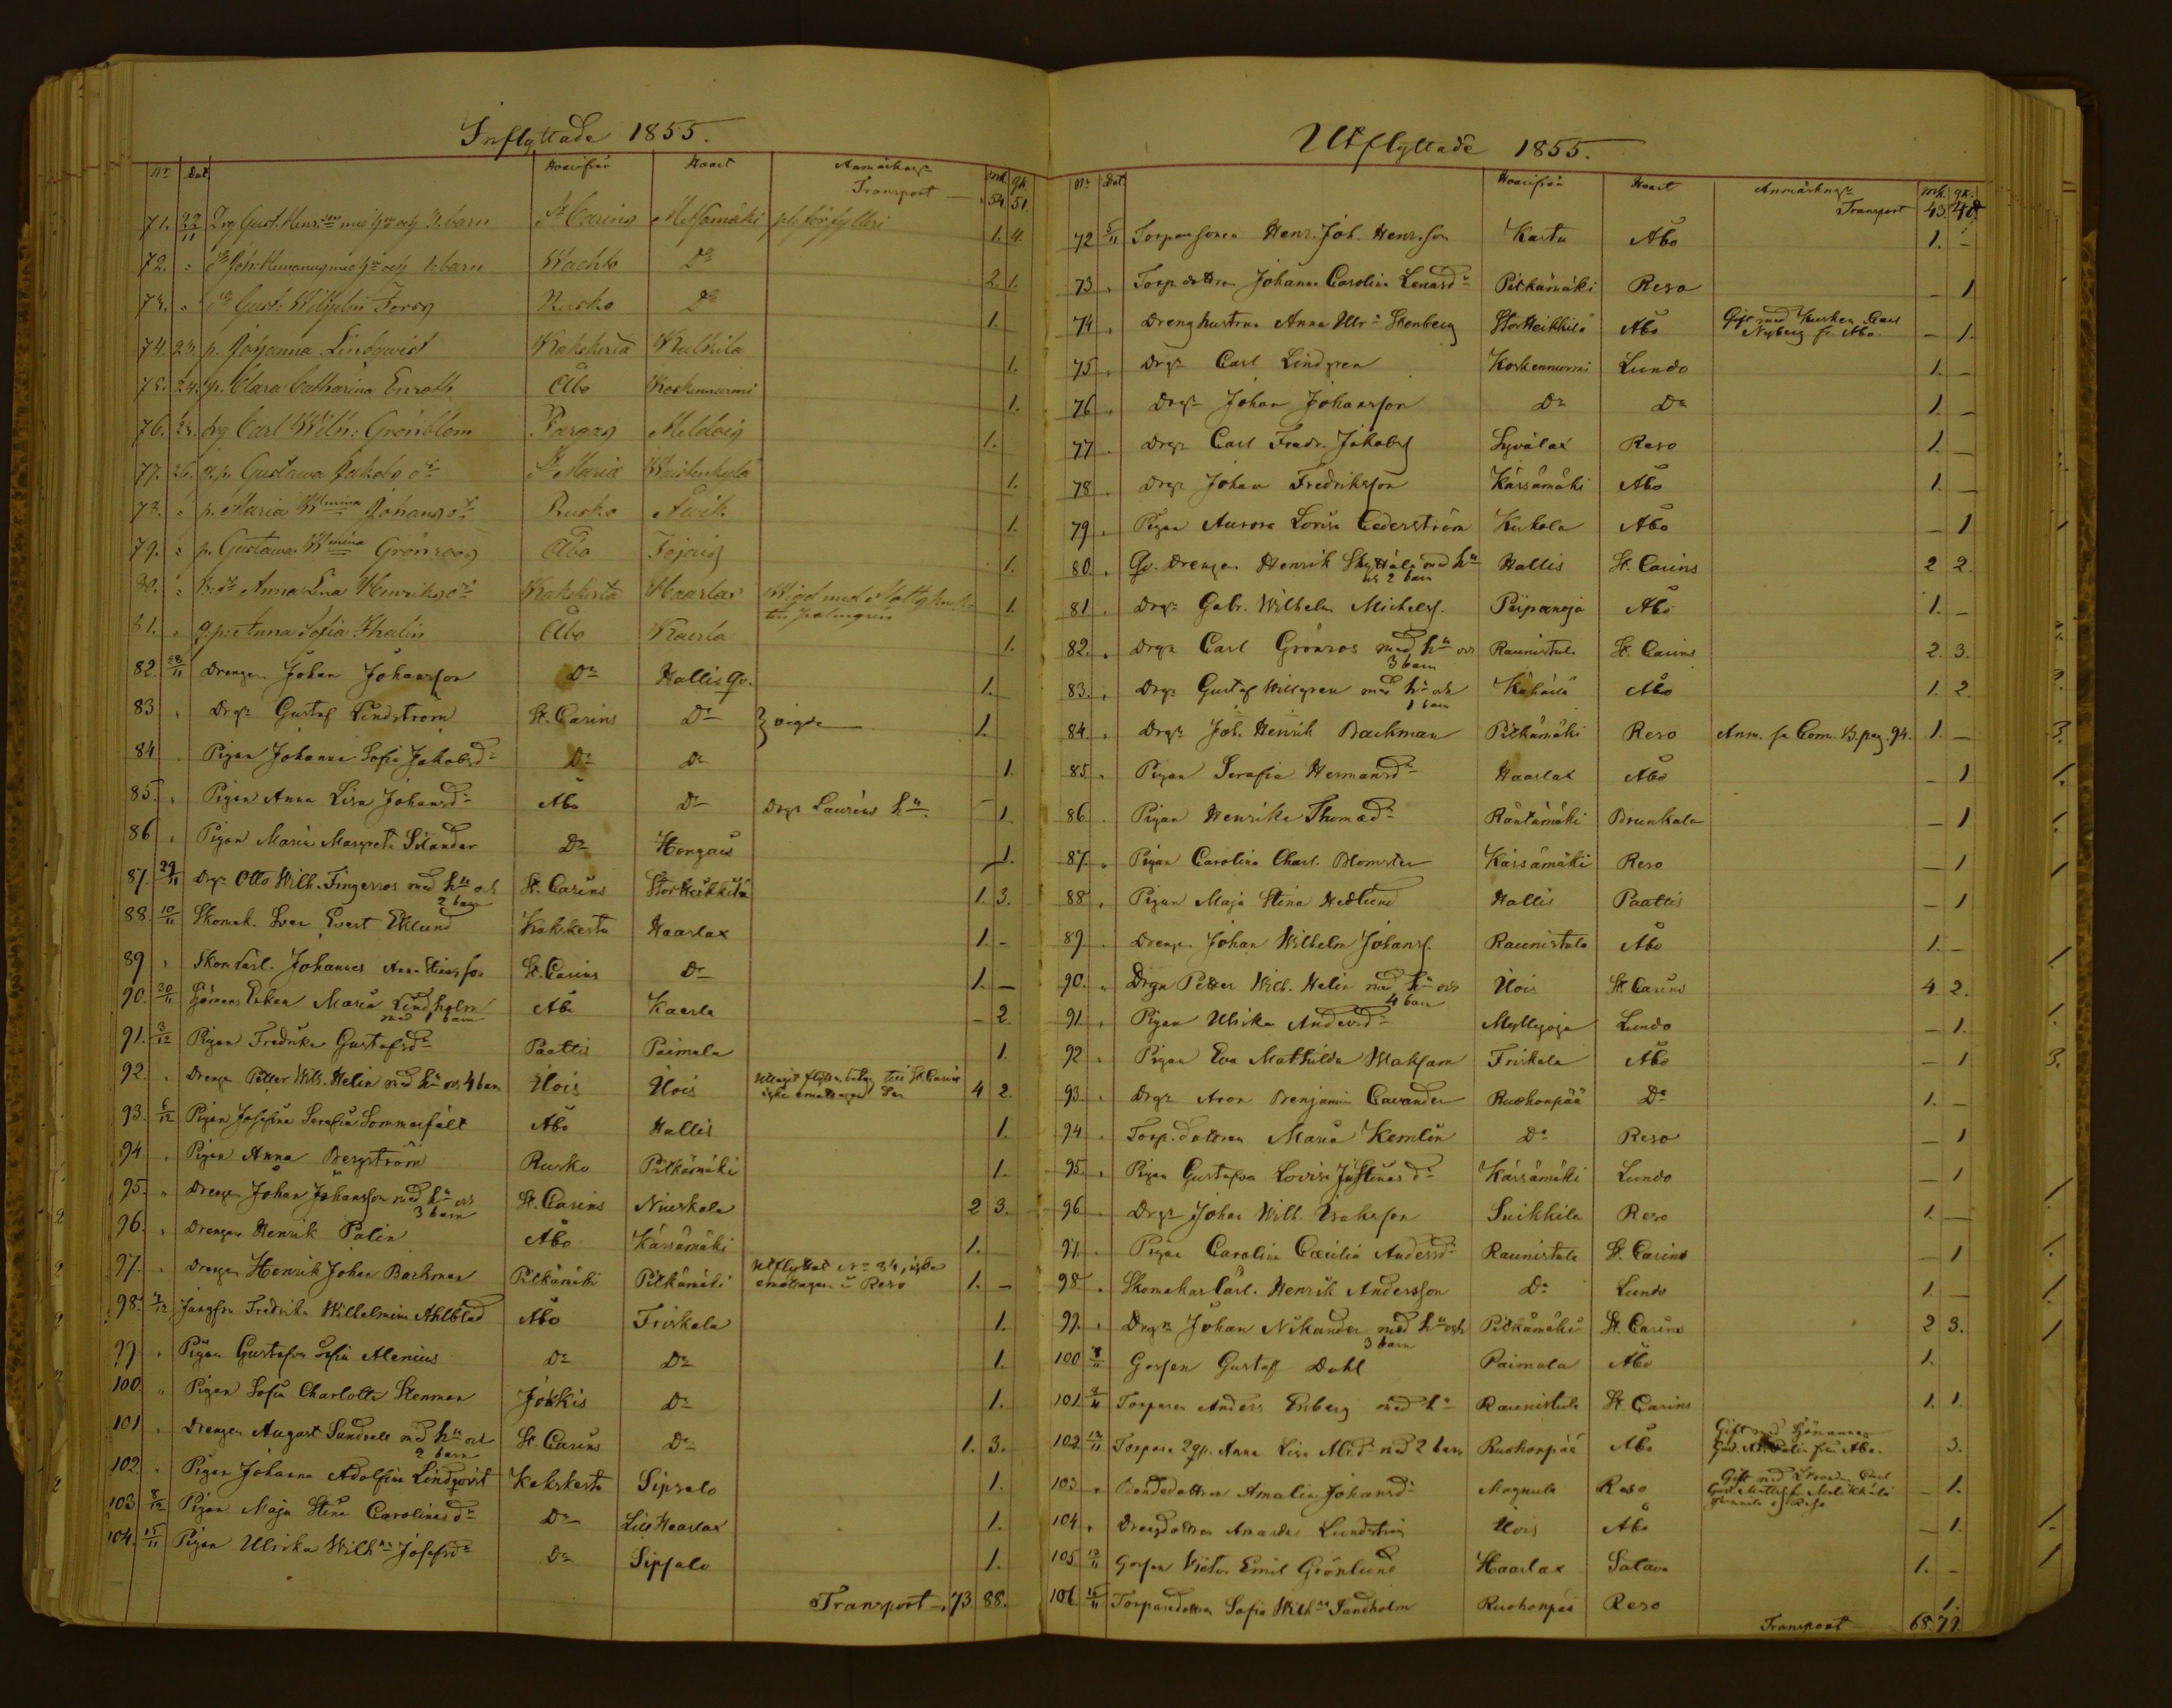 Inflyttade 1855.
No Dat Hvarifrån Hvart Anmärkngr mk. qk.
Transport — 54. 51.
71. 22/11 Drg Gust. Henr:son med h:u och 3. barn St Carins Metsamäki 1. 4.
72. " barn Wachto Do 2. 1.
73. " Do Gust. Wilhelm Forss Rusko Do 1.
74. 23. p. Johanna Lindqwist Kakskerta 1.
75. 24. p. Clara Catharina Enroth Åbo Koskennurmi 1.
76. 25. drg Carl Wilh: Grönblom Pargas 1.
77. 26. Gustawa Jakobs dr St Maria 1.
78. " p. Maria Wmina Johans dr Rusko 1.
79. " p. Gustawa Wmina Grönroos Åbo 1.
80. " Anna Lisa Henriks dr Kakskerta Haarlax 1.
81. " Anna Sofia Thalin Åbo Kaerla 1.
82. 28/11 Drengen Johan Johansson Do Hallis Qv. 1.
83 " Drgn Gustaf Lindström St. Carins Do } vigde 1.
84 Pigan Johanna Sofia Jakobsdr Do Do 1.
85. " Pigan Anna Lisa Johansdr Åbo Do Drgn Lauréns hu 1
86 " Pigan Maria Margreta Silander Do 1.
87. 29/11 Drgn Otto Wilh. Fingerroos med hu och St. Carins StorHeikkilä 1. 3.
2 barn
88. 10/11 Skomak. Ivar Evert Eklund Kakskerta Haarlax 1. -
89 " Skom lärl. Johannes Anna Stinasson St. Carins Do 1. —
90. 30/11 Enkan Maria Lindholm Åbo Kaerla - 2.
med 1 barn
91. 3/12 Pigan Fredrika Gustafsdr Paattis Paimala 1.
92. " Drengn Petter Wilh. Helin med hu och 4 barn Ilois Ilois till St. Carins 4 2.
93. 6/12 Pigan Josefina Serafia Sommerfält Åbo Hallis 1.
94 " Pigan Anna Bergström Rusko Pitkämäki 1.
95. " Drengen Johan Johansson med hu och St. Carins Niuskala 2 3.
3 barn
96. " Drengen Henrik Palin Åbo Kärsämäki 1.
97. " Drengen Henrik Johan Backman Pitkämäki Pitkämäki Utflyttat No 84, icke
emottagen i Reso 1. -
98. 7/12 Jungfru Fredrika Wilhelmina Ahlblad Åbo Friskala 1.
99 " Pigan Gustafva Sofia Alenius Do Do 1.
100. " Pigan Sofia Charlotta Stenman Jokkis Do 1.
101 " Drengen August Sundvall med hu och St. Carins Do 1. 3.
2 barn
102. " Pigan Johanna Adolfina Lindqvist Kakskerta Sipsalo 1.
103 8/12 Pigan Maja Stina Carolinasdr Do Lill Haarlax 1.
104. 15/11 Pigan Ulrika Wilhna Josefsdr Do Sipsalo 1.
Transport — 73. 88.
Utflyttade 1855.
No Dat Hvarifrån Hvart Anmärkngr mk. qk.
Transport 43. 48.
72 5/11 Torparsonen Henr. Joh. Henrsson Kastu Åbo 1. -
73. " Torp.dottren Johanna Carolina Lenasdr Pitkämäki Reso - 1
74 " Drenghustrun Anna Ulra Stenberg StorHeikkilä Åbo Gift med Kusken Carl
Nyberg fr. Åbo. - 1.
75 " Drgn Carl Lindgren Koskennurmi Lundo 1. -
76 " Drgn Johan Johansson Do Do 1. -
77 Drgn Carl Fredr. Jakobss Lyvälax Reso 1. -
78 " Drgn Johan Fredriksson Kärsämäki Åbo 1. -
79 " Pigan Aurora Lovisa Cederström Kukola Åbo - 1
80. " Qv. Drengen Henrik med hu Hallis St. Carins 2 2.
och 2 barn
81. " Drgn Gabr. Wilhelm Michelss. Piipanoja Åbo 1. -
82. " Drgn Carl Grönroos med hu och Raunistula St. Carins 2. 3.
3 barn
83. " Drgn Gustaf Willgren med hu och Kähärlä Åbo 1. 2.
1 barn
84. " Drgn Joh. Henrik Backman Pitkämäki Reso Anm. se Com. B. pag. 94. 1. -
85. " Pigan Serafia Hermansdr Haarlax Åbo - 1
86. Pigan Henrika Thomædr Räntämäki Brunkala - 1
87. " Pigan Carolina Charl. Blomster Kärsämäki Reso - 1
88 " Pigan Maja Stina Hedlund Hallis Paattis - 1
89 Drengen Johan Wilhelm Johanss. Raunistula Åbo 1. -
90. " Drgn Petter Wilh. Helin med hu och Ilois St. Carins 4. 2.
4 barn
91. " Pigan Ulrika Andersdr Myllyoja Lundo - 1.
92 " Pigan Eva Mathilda Friskala Åbo - 1
93. " Drgn Aron Benjamin Cavander Ruohonpää Do 1. -
94 . Torp.dottren Maria Kemlin Do Reso - 1
95. " Pigan Gustafva Lovisa Justinasdr Kärsämäki Lundo - 1
96. Drgn Johan Wilh. Isaksson Suikkila Reso 1. -
97. Pigan Carolina Cæcilia Andersdr Raunistula St. Carins - 1
98 " Skomakarlärl. Henrik Andersson Do Lundo 1. -
99. " Drgn Johan Nikander med hu och Pitkämäki St. Carins 2 3.
3 barn
100 8/11 Gossen Gustaf Dahl Paimala Åbo 1.
101. 9/11 Torparen Anders Enberg med hu Raunistula St. Carins 1. 1.
102 12/11 Anna Lisa med 2 barn Ruohonpää Åbo Gift med
fr. Åbo. 3.
103 " Bondedottren Amalia Johansdr Magnula Reso Gift med - 1.
104 " Drengdottren Amanda Lundström Ilois Åbo - 1.
105 13/11 Gossen Victor Emil Grönlund Haarlax Satava 1. -
106 15/11 Torparedottren Sofia Wilhna Sandholm Ruohonpää Reso 1.
Transport 68. 79.